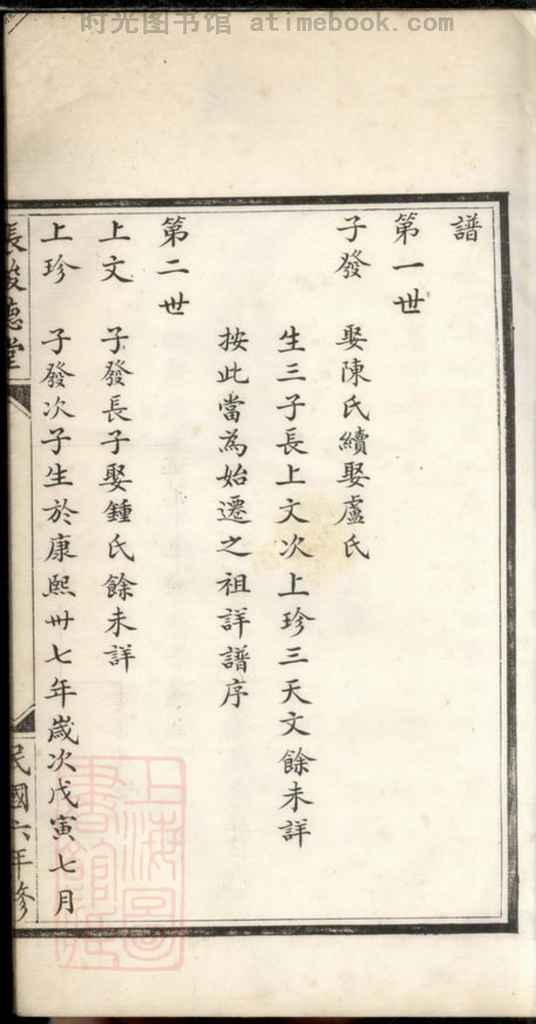 时光图书馆 atimebook.com
譜
第一世
子發 娶陳氏續娶盧氏
生三子長上文次上珍三天文餘未詳
按此當為始遷之祖詳譜序
第二世
上文 子發長子娶鍾氏餘未詳
上珍 子發次子生於康熙卅七年歲次戊寅七月
德堂
民國六年修
上海圖
書館藏